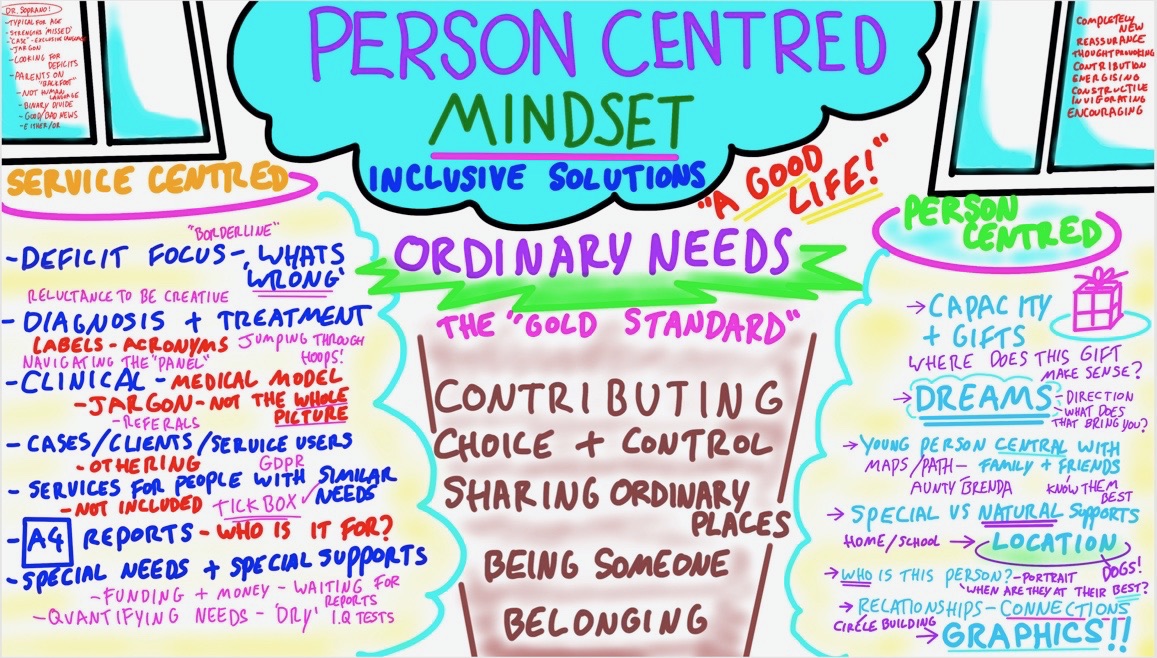 DR. SOPRANO!
-TYPICAL FOR AGE
-STRENGTHS 'MISSED'
-"CASE"-EXCLUSIVE LANGUAGE
-JARGON
-LOOKING FOR
DEFICITS
-PARENTS ON
"BACKFOOT"
-NOT HUMAN
LANGUAGE
-BINARY DIVIDE
-GOOD/BAD NEWS
-EITHER/OR
PERSON CENTRED
MINDSET
INCLUSIVE SOLUTIONS
COMPLETELY
NEW
REASSURANCE
THOUGHT PROVOKING
CONTRIBUTION
ENERGISING
CONSTRUCTILE
INVIGORATING
ENCOURAGING
SERVICE CENTRED
"BORDERLINE"
-DEFICIT FOCUS-'WHATS
WRONG'
RELUCTANCE TO BE CREATIVE
-DIAGNOSIS + TREATMENT
LABELS-ACRONYMS JUMPING THROUGH
HOOPS!
NAVIGATING THE "PANEL"
-CLINICAL-MEDICAL MODEL
-JARGON-NOT THE WHOLE
PICTURE
-REFERALS
-CASES/CLIENTS/SERVICE USERS
-OTHERING GDPR
-SERVICES FOR PEOPLE WITH SIMILAR
NEEDS
-NOT INCLUDED TICK BOX ✓
-A4 REPORTS-WHO IS IT FOR?
-SPECIAL NEEDS + SPECIAL SUPPORTS
-FUNDING + MONEY-WAITING FOR
REPORTS
-QUANTIFYING NEEDS-'DRY' I.Q TESTS
"A GOOD
LIFE!"
ORDINARY NEEDS
THE "GOLD STANDARD"
CONTRIBUTING
CHOICE + CONTROL
SHARING ORDINARY
PLACES
BEING SOMEONE
BELONGING
PERSON
CENTRED
→CAPACITY
+ GIFTS
WHERE DOES THIS GIFT
MAKE SENSE?
→DREAMS-DIRECTION
-WHAT DOES
THAT BRING YOU?
→YOUNG PERSON CENTRAL WITH
MAPS/PATH-FAMILY + FRIENDS
AUNTY BRENDA KNOW THEM
BEST
→SPECIAL VS NATURAL SUPPORTS
HOME/SCHOOL→LOCATION
DOGS!
→WHO IS THIS PERSON?-PORTRAIT
WHEN ARE THEY AT THEIR BEST?
→RELATIONSHIPS-CONNECTIONS
CIRCLE BUILDING
→GRAPHICS!!